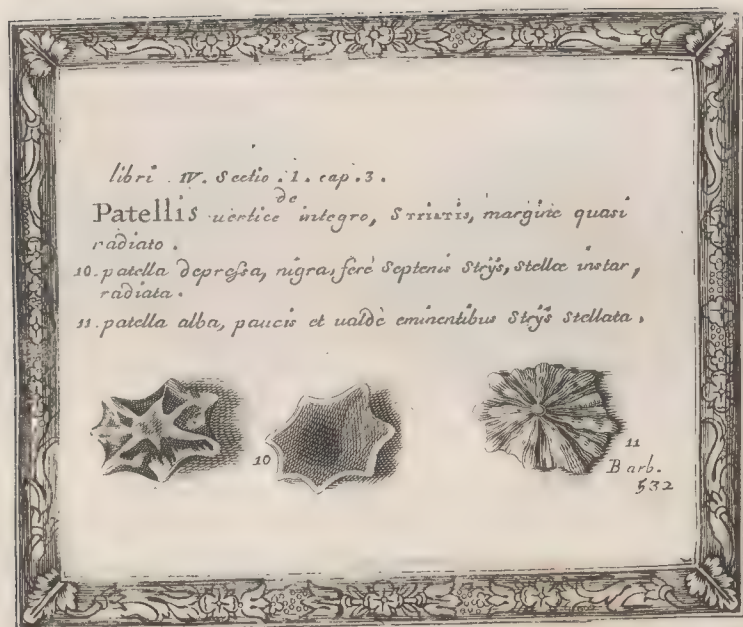 libri . IV. Sectio . 1. cap. 3.
de
Patellis uertice integro, STRIATIS, margine quasi
radiato .
10. patella depreſsa, nigra, ferè Septenis Strÿs, Stellæ instar,
radiata.
11. patella alba, paucis et ualdè eminentibus Strÿs Stellata,
10
11
Barb.
532